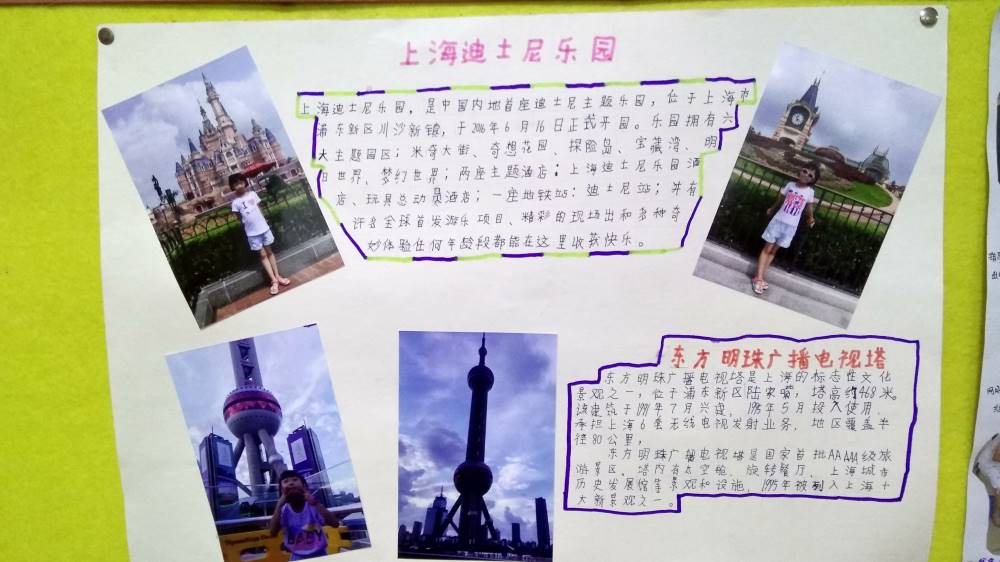 上海迪士尼乐园
上海迪士尼乐园，是中国内地首座迪士尼主题乐园，位于上海市
浦东新区川沙新镇，于2016年6月16日正式开园。乐园拥有六
大主题园区：米奇大街、奇想花园、探险岛、宝藏湾、明
日世界、梦幻世界；两座主题酒店：上海迪士尼乐园酒
店、玩具总动员酒店；一座地铁站：迪士尼站；并有
许多全球首发游乐项目、精彩的现场出和多种奇
妙体验任何年龄段都能在这里收获快乐。
东方明珠广播电视塔
东方明珠广播电视塔是上海的标志性文化
景观之一，位于浦东新区陆家嘴，塔高约468米。
该建筑于1991年7月兴建，1995年5月投入使用，
承担上海6套无线电视发射业务，地区覆盖半
径80公里，
东方明珠广播电视塔是国家首批AAAA级旅
游景区。塔内有太空舱、旋转餐厅、上海城市
历史发展馆等景观和设施，1995年被列入上海十
大新景观之一。
BABY